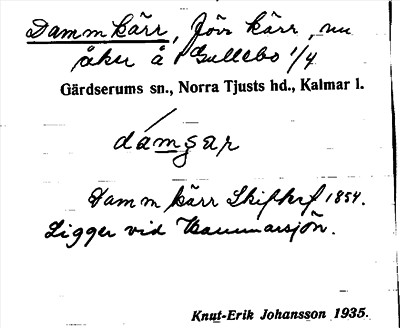 Dammkärr, förr kärr, nu
åker å Gullebo 1/4
Gärdserums sn., Norra Tjusts hd., Kalmar l.
dámsar
Damm kärr Skifkrf 1854.
Ligger vid Hammarsjön.
Knut-Erik Johansson 1935.